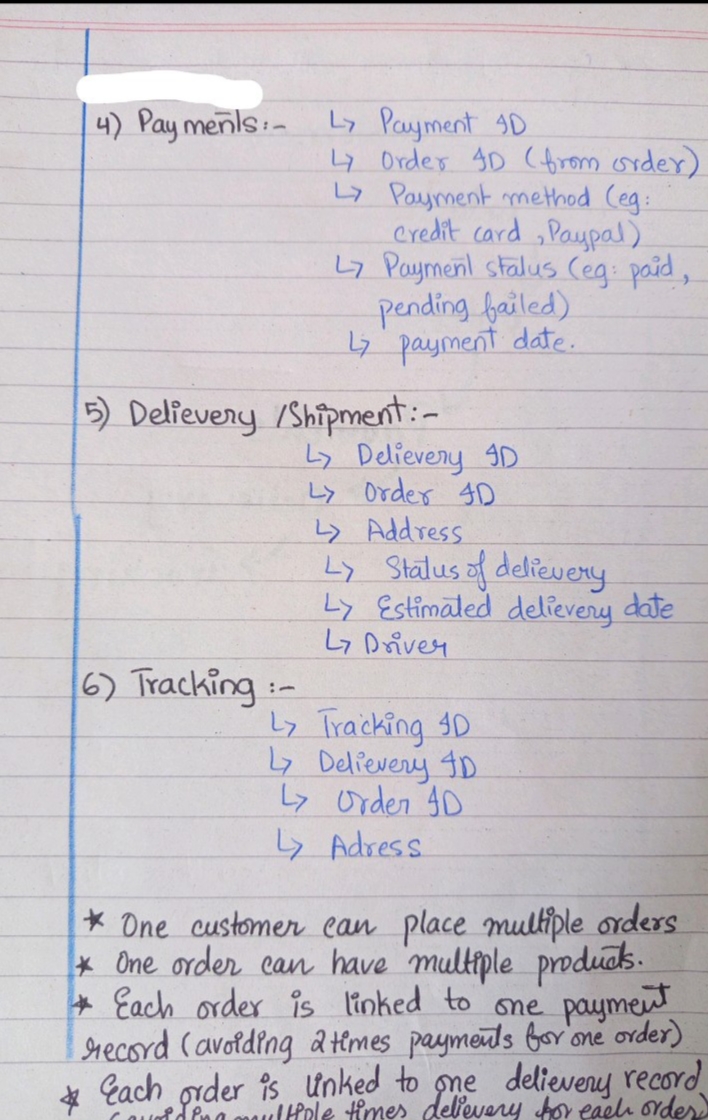 4) Payments:-
↳ Payment ID
↳ Order ID (from order)
↳ Payment method (eg:
credit card ,Paypal)
↳ Payment status (eg: paid,
pending failed)
↳ payment date.
5) Delievery /Shipment:-
↳ Delievery ID
↳ Order ID
↳ Address
↳ Status of delievery
↳ Estimated delievery date
↳ Driver
6) Tracking :-
↳ Tracking ID
↳ Delievery ID
↳ Order ID
↳ Adress
* One customer can place multiple orders
* One order can have multiple products.
* Each order is linked to one payment
record (avoiding 2 times payments for one order)
* Each order is linked to one delievery record
(avoiding multiple times delievery for each order)